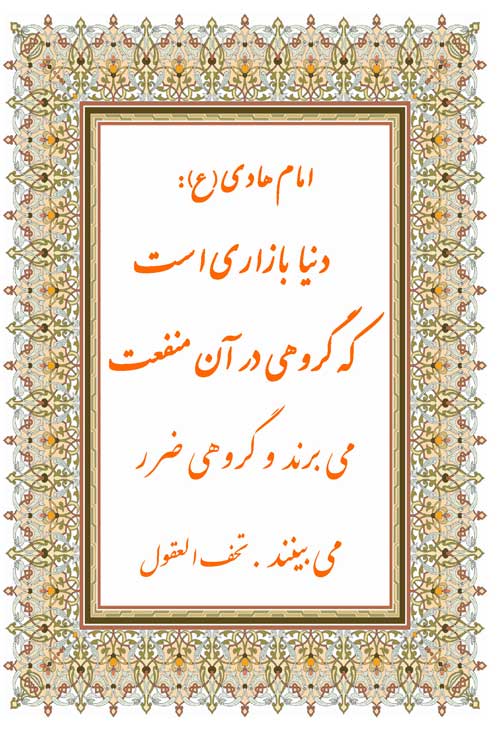 امام هادی (ع):
دنیا بازاری است
که گروهی در آن منفعت
می برند و گروهی ضرر
می بینند . تحف العقول